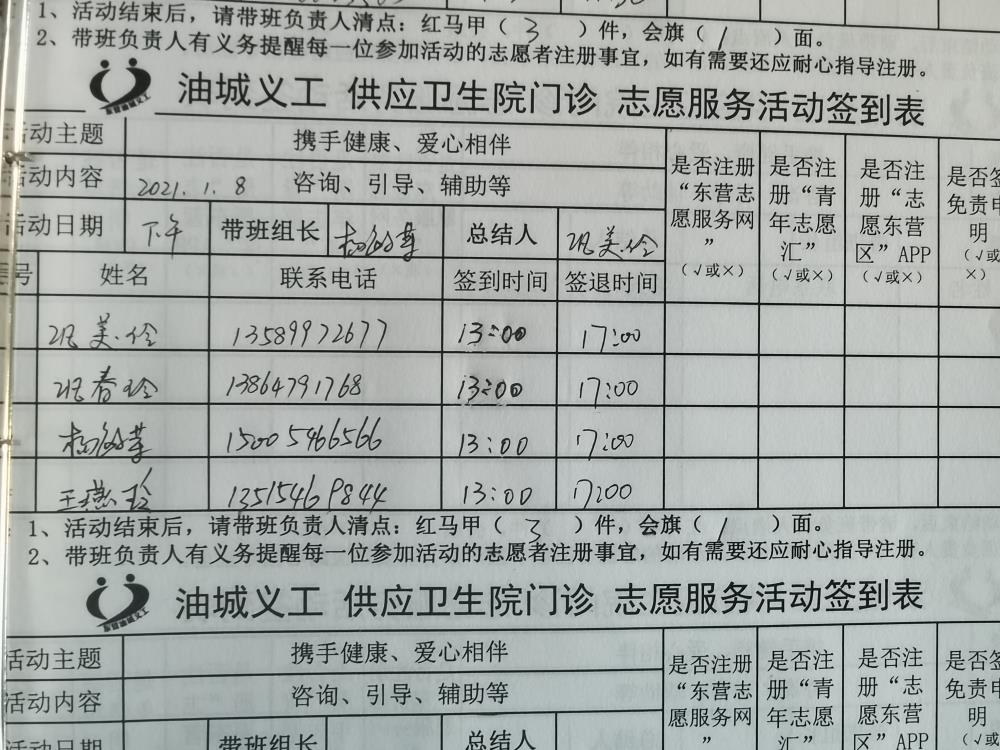 1、活动结束后，请带班负责人清点：红马甲（ 3 ）件，会旗（ 1 ）面。
2、带班负责人有义务提醒每一位参加活动的志愿者注册事宜，如有需要还应耐心指导注册。
油城义工 供应卫生院门诊 志愿服务活动签到表
活动主题 携手健康、爱心相伴 是否注册“东营志愿服务网”（√或×） 是否注册“青年志愿汇”（√或×） 是否注册“志愿东营区”APP（√或×） 是否签免责申明（√或×）
活动内容 2021.1.8 咨询、引导、辅助等
活动日期 下午 带班组长 总结人 巩美伶
号 姓名 联系电话 签到时间 签退时间
巩美伶 13589972677 13:00 17:00
巩春玲 13864791768 13:00 17:00
15005466566 13:00 17:00
王燕玲 13515469844 13:00 17:00
1、活动结束后，请带班负责人清点：红马甲（ 3 ）件，会旗（ 1 ）面。
2、带班负责人有义务提醒每一位参加活动的志愿者注册事宜，如有需要还应耐心指导注册。
油城义工 供应卫生院门诊 志愿服务活动签到表
活动主题 携手健康、爱心相伴 是否注册“东营志愿服务网” 是否注册“青年志愿汇” 是否注册“志愿东营区”APP 是否签免责申明（√或
活动内容 咨询、引导、辅助等
活动日期 带班组长 总结人